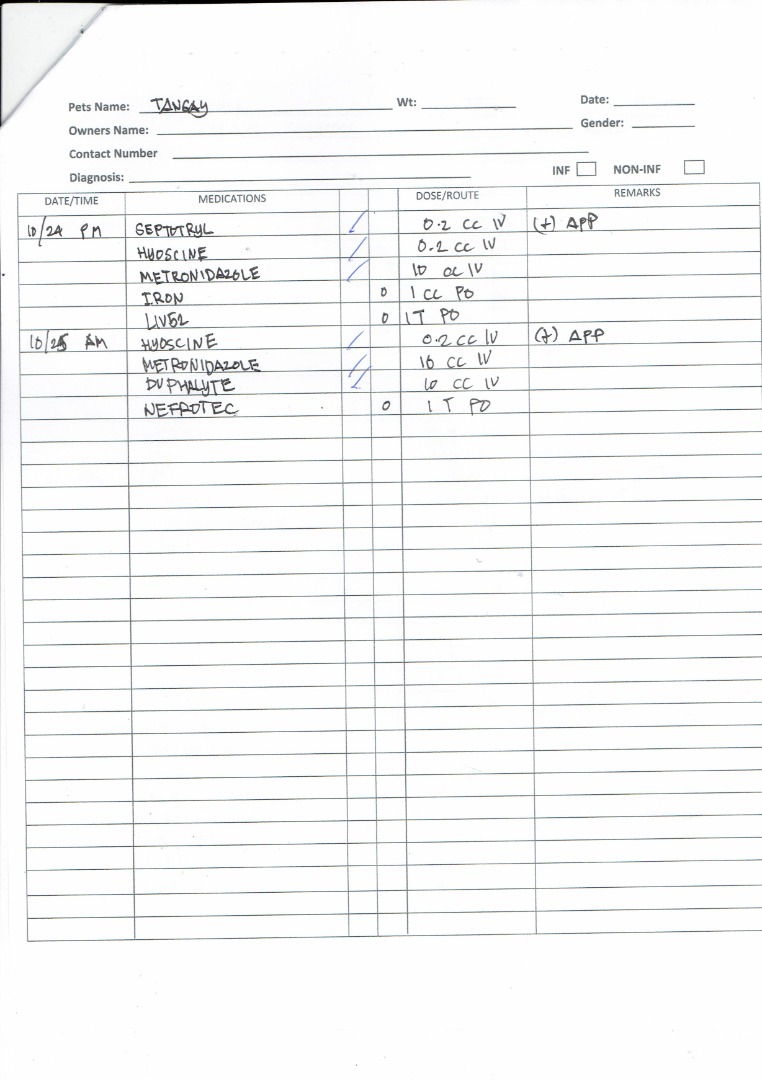 Pets Name: TANGAY Wt: Date:
Owners Name: Gender:
Contact Number
Diagnosis: INF NON-INF
DATE/TIME MEDICATIONS DOSE/ROUTE REMARKS
10/24 PM SEPTOTRYL / 0.2 CC IV (+) APP
HYOSCINE / 0.2 CC IV
METRONIDAZOLE / 10 CC IV
IRON 0 1 CC PO
LIV52 0 1T PO
10/25 AM HYOSCINE / 0.2 CC IV (+) APP
METRONIDAZOLE / 10 CC IV
DUPHALYTE / 10 CC IV
NEFROTEC 0 1 T PO